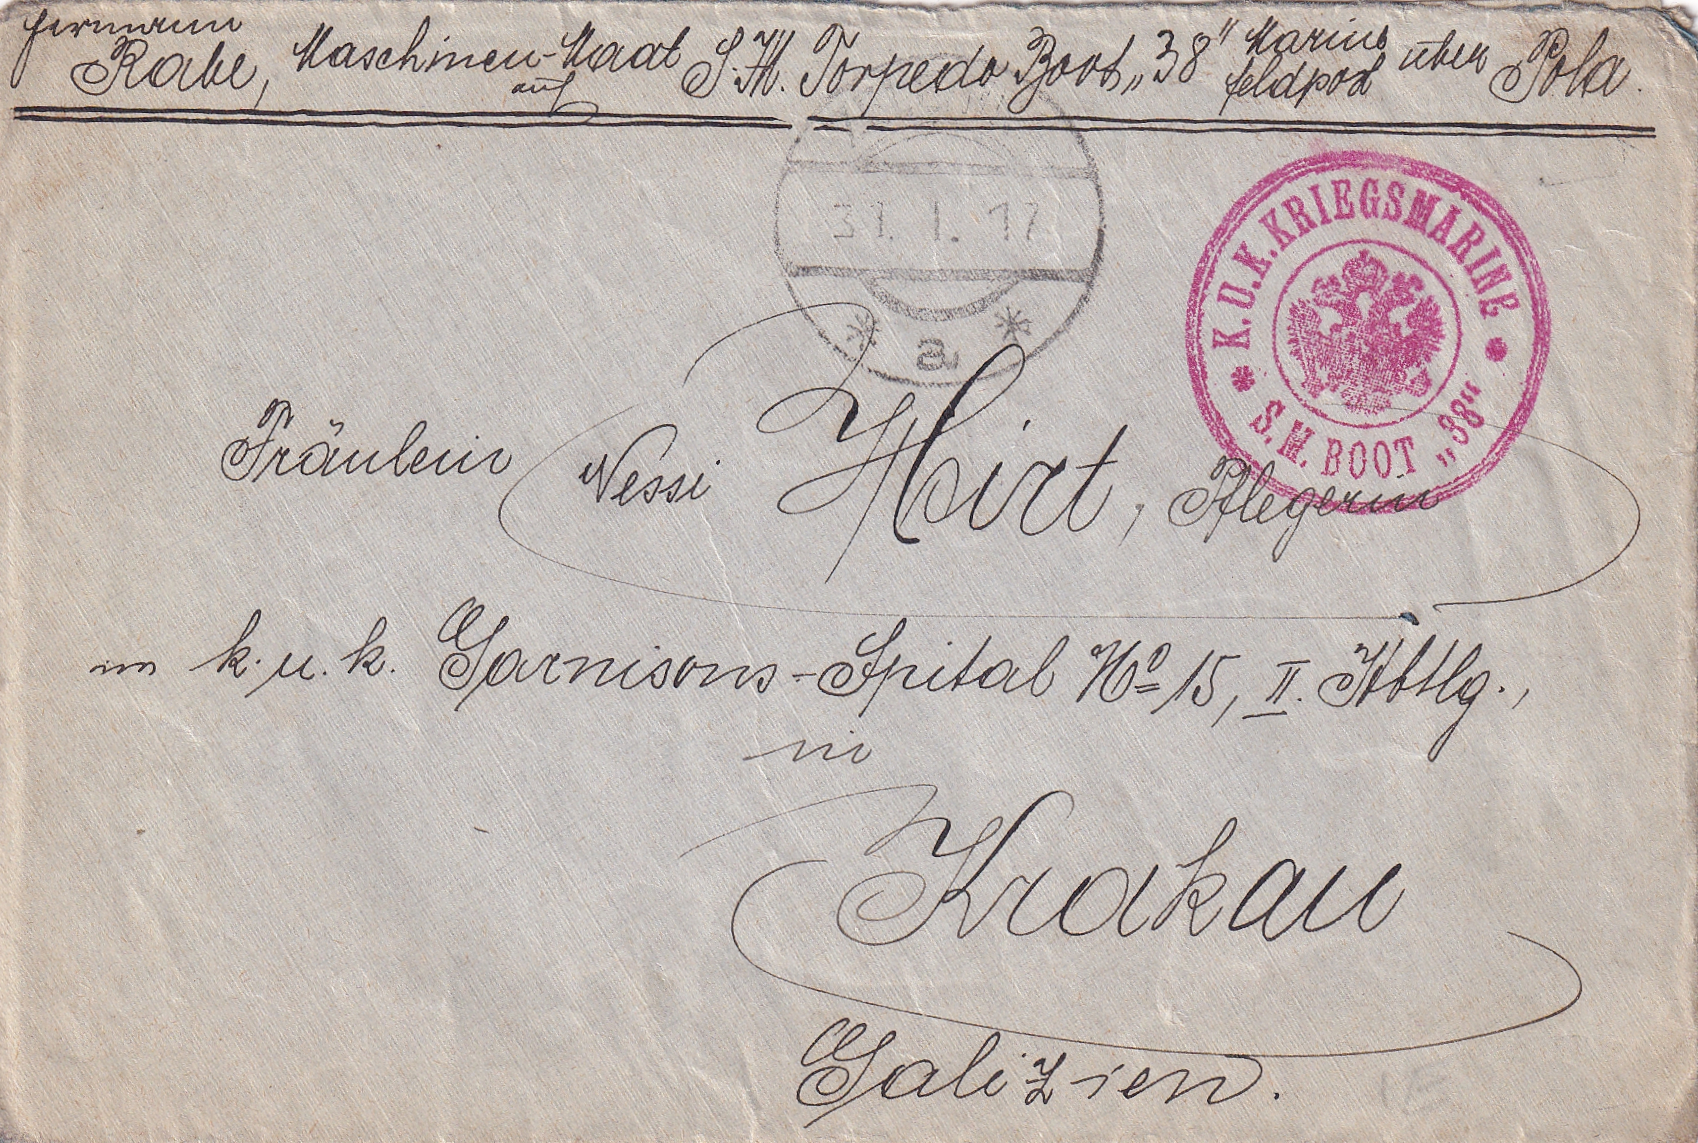 Hermann
Rabe, Maschinen-Maat auf S.M. Torpedo Boot „38“ Marine feldpost über Pola.
31. I. 17
a
K. U. K. KRIEGSMARINE
S. M. BOOT „38“
Fräulein Nessi Hirt, Pflegerin
im k. u. k. Garnisons-Spital No 15, II. Abtlg.,
in
Krakau
Galizien.